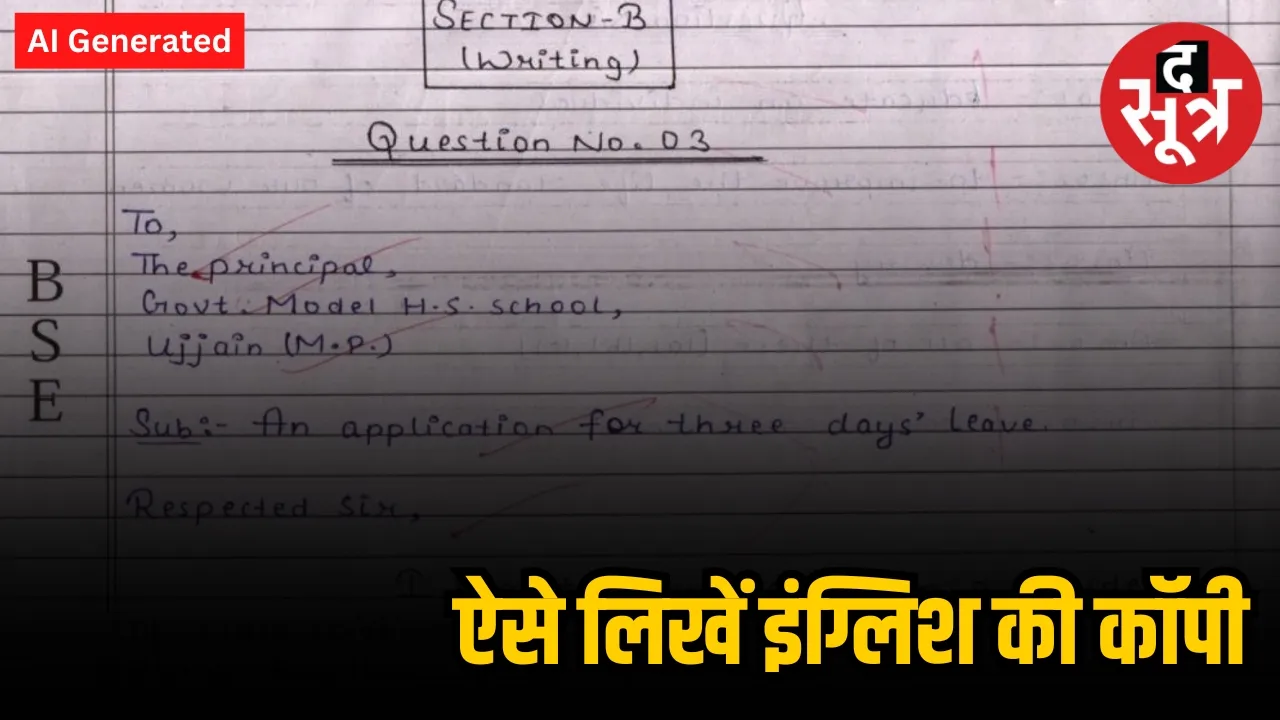 AI Generated
द सूत्र
SECTION-B
(Writing)
Question No. 03
To,
The principal,
Govt. Model H.S. school,
Ujjain (M.P.)
B
S
E
Sub:- An application for three days' leave.
Respected Sir,
I
ऐसे लिखें इंग्लिश की कॉपी